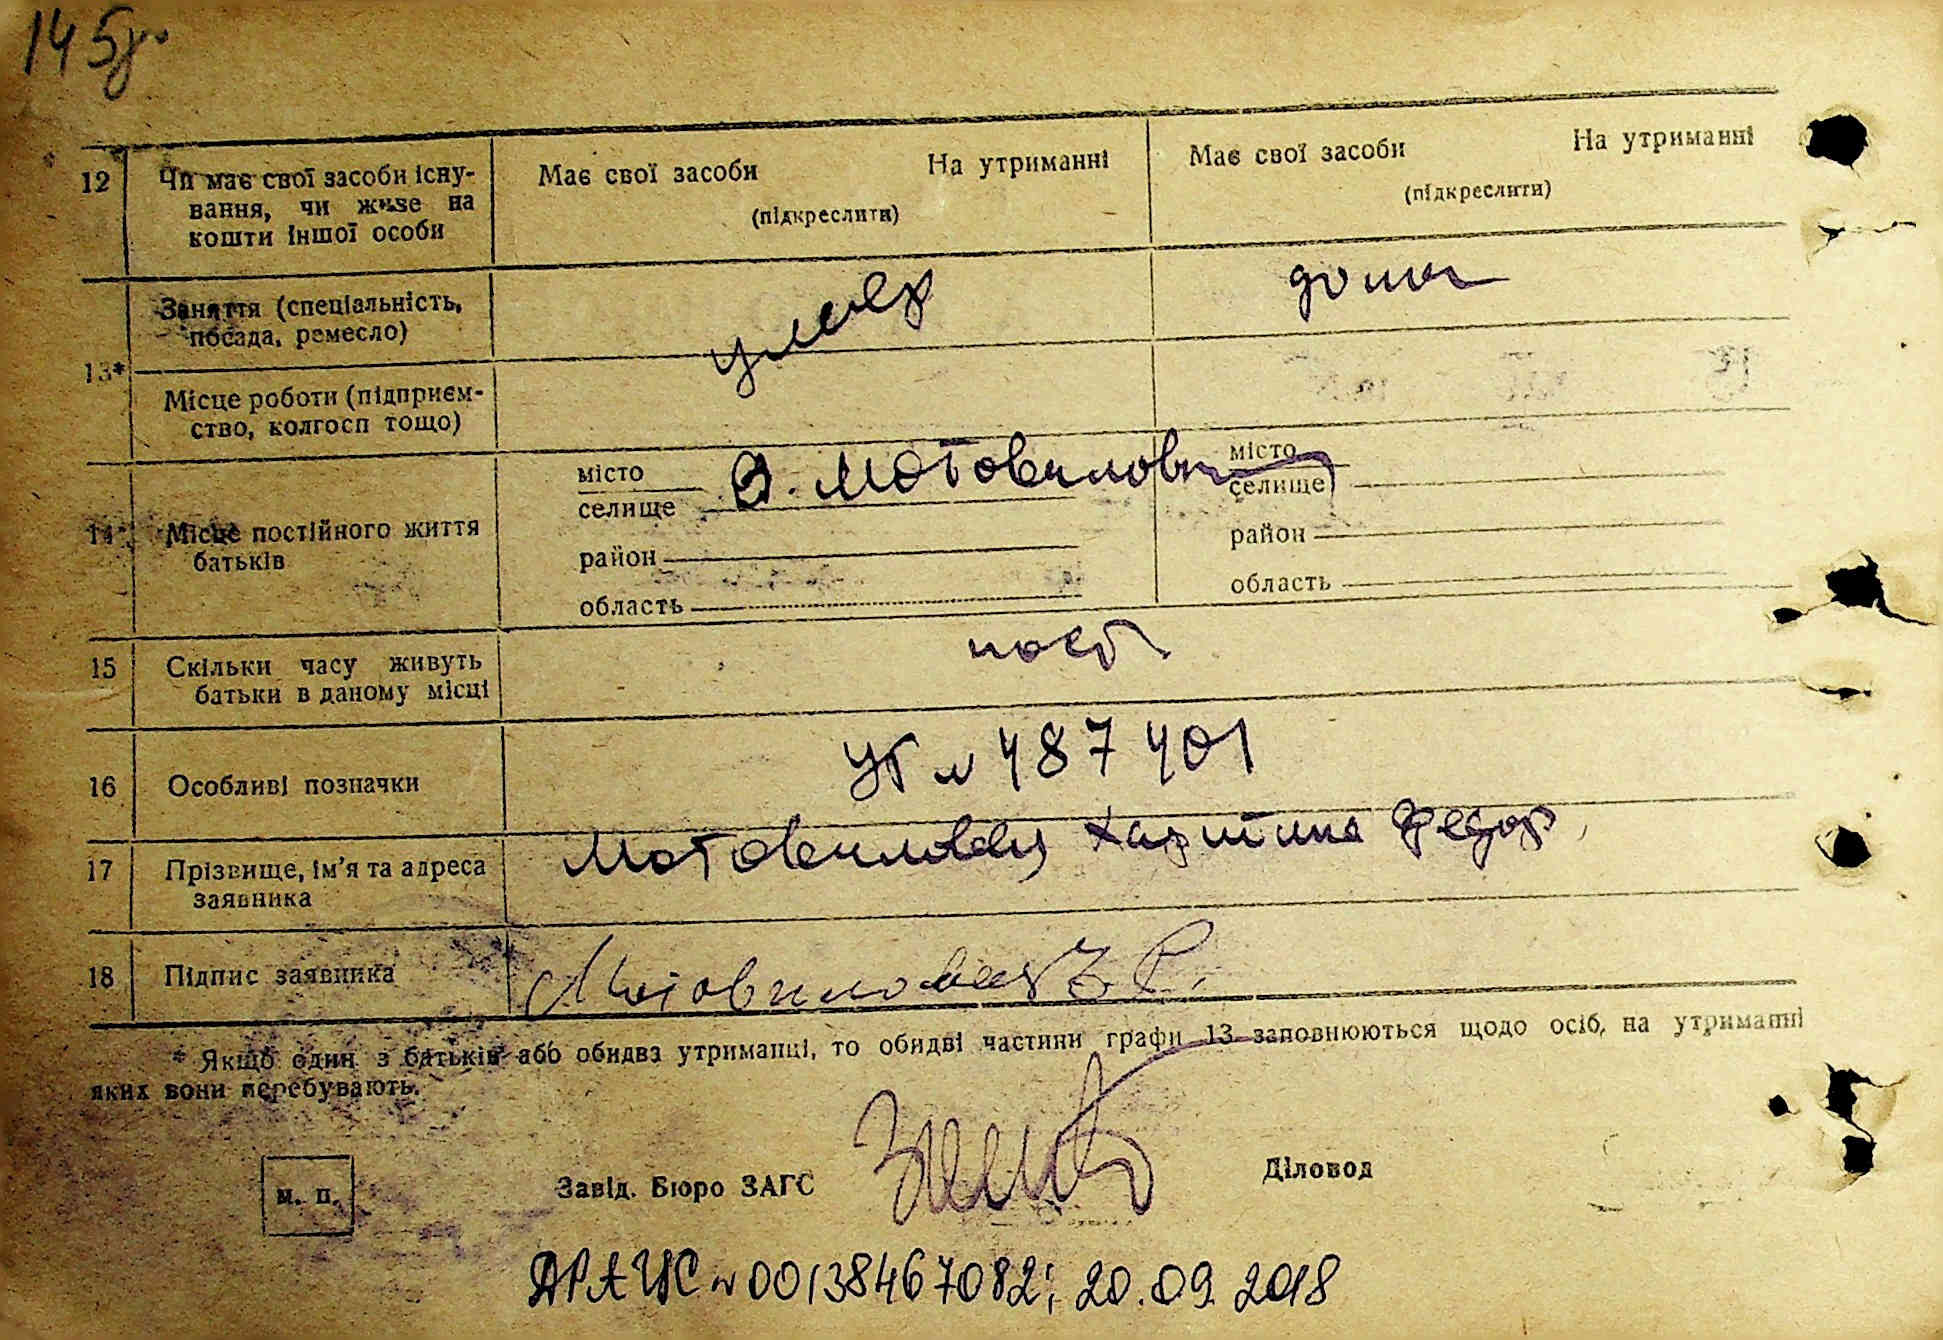 145
12 Чи має свої засоби існу-
вання, чи живе на
кошти іншої особи
Має свої засоби На утриманні
(підкреслити)
Має свої засоби На утриманні
(підкреслити)
13* Заняття (спеціальність,
посада, ремесло)
умер
дома
Місце роботи (підприєм-
ство, колгосп тощо)
14* Місце постійного життя
батьків
місто
селище
В. Мотовиловка
район
область
місто
селище
район
область
15 Скільки часу живуть
батьки в даному місці
пост
16 Особливі позначки
УБ № 487401
17 Прізвище, ім'я та адреса
заявника
Мотовиловец Харитина Федор
18 Підпис заявника
* Якщо один з батьків або обидва утриманці, то обидві частини графи 13 заповнюються щодо осіб, на утриманні
яких вони перебувають.
м. п.
Завід. Бюро ЗАГС
Діловод
ДРАЦС № 00138467082; 20.09.2018